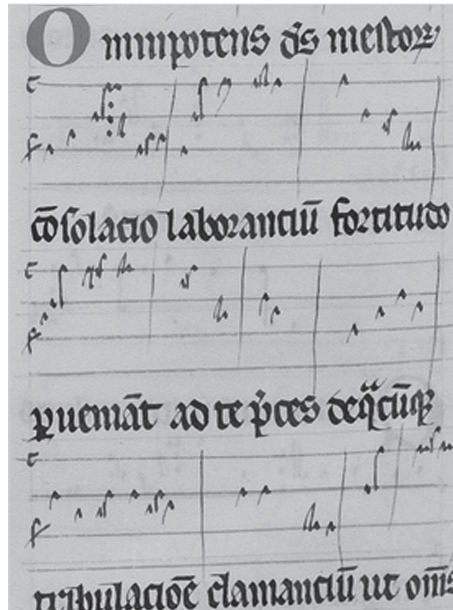 Omnipotens ds mestoꝝ
cōsolacio laboranciū fortitudo
ꝑueniāt ad te p̄ces de qͣcūqꝫ
tribulacōe clamanciū ut om̄s